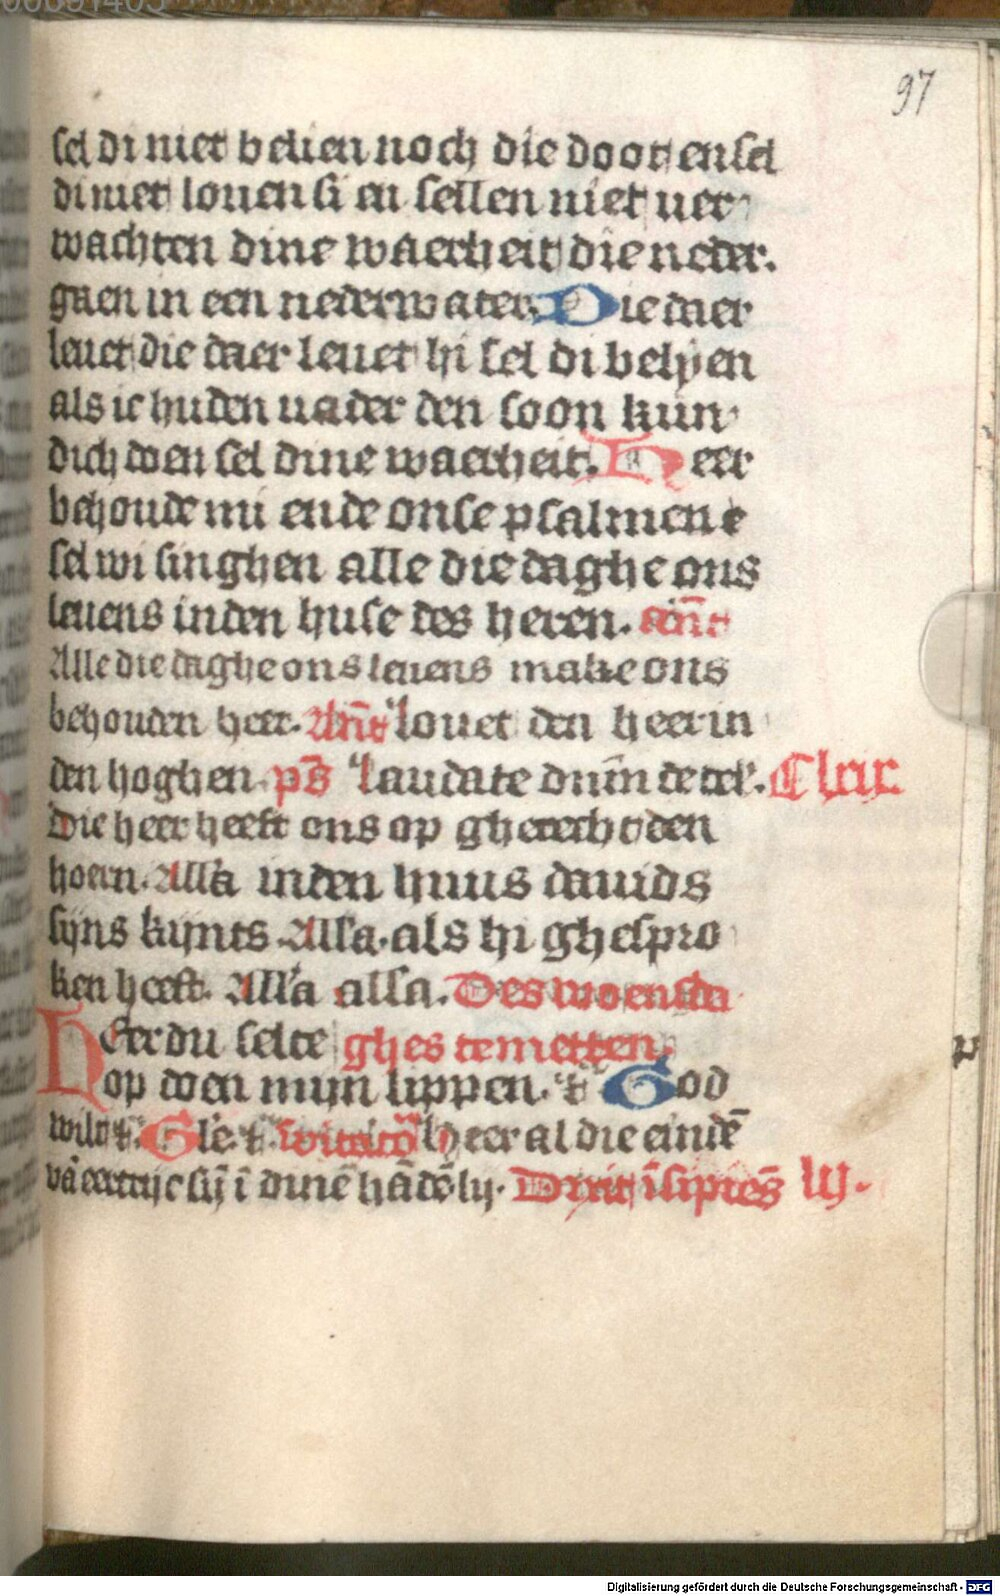 97
sel di niet belien noch die doot en sel
di niet louen si en sellen niet uer
wachten dine waerheit die neder.
gaen in een neder water. Die daer
leuet die daer leuet hi sel di belyen
als ic huden uader den soon kun
dich doen sel dine waerheit. Heer
behoude mi ende onse psalmen e
sel wi singhen alle die daghe ons
leuens inden huse des heren. an̄t
Alle die daghe ons leuens make ons
behouden heer. An̄t louet den heer in
den hoghen. ps̄ laudate dn̄m de cel'. Clric
Die heer heeft ons op gherecht den
hoern. All'a inden huus dauids
sijns kijnts. All'a. als hi ghespro
ken heeft. All'a all'a. Des woensda
Heer du selte ghes te metten.
op doen mijn lippen. God
wilt Gle. heer al die eindē
vā eertrijc sij ī dinē hādē lij. Dixit īsipiēs lij.
Digitalisierung gefördert durch die Deutsche Forschungsgemeinschaft - DFG